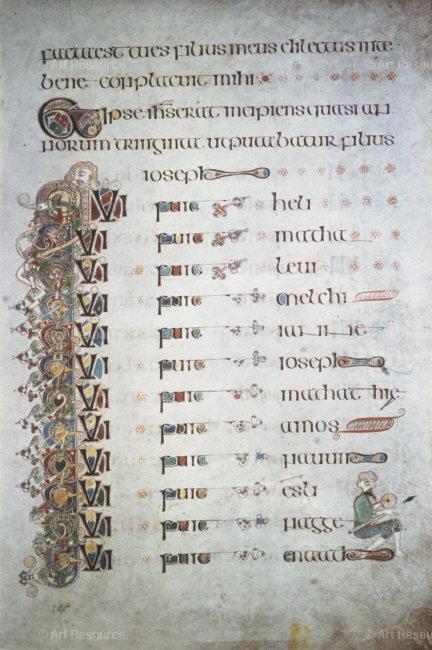 factaest tues filius meus dilectus inte
bene conplacuit mihi
Et ipse ihs erat incipiens quasi an
norum triginta ut putabatur filius
ioseph
QVI fuit heli
QVI fuit mathat
QVI fuit leui
QVI fuit melchi
QVI fuit iannae
QVI fuit ioseph
QVI fuit mathathie
QVI fuit amos
QVI fuit nauum
QVI fuit esli
QVI fuit nagge
QVI fuit maath
© Art Resource © Art Resource